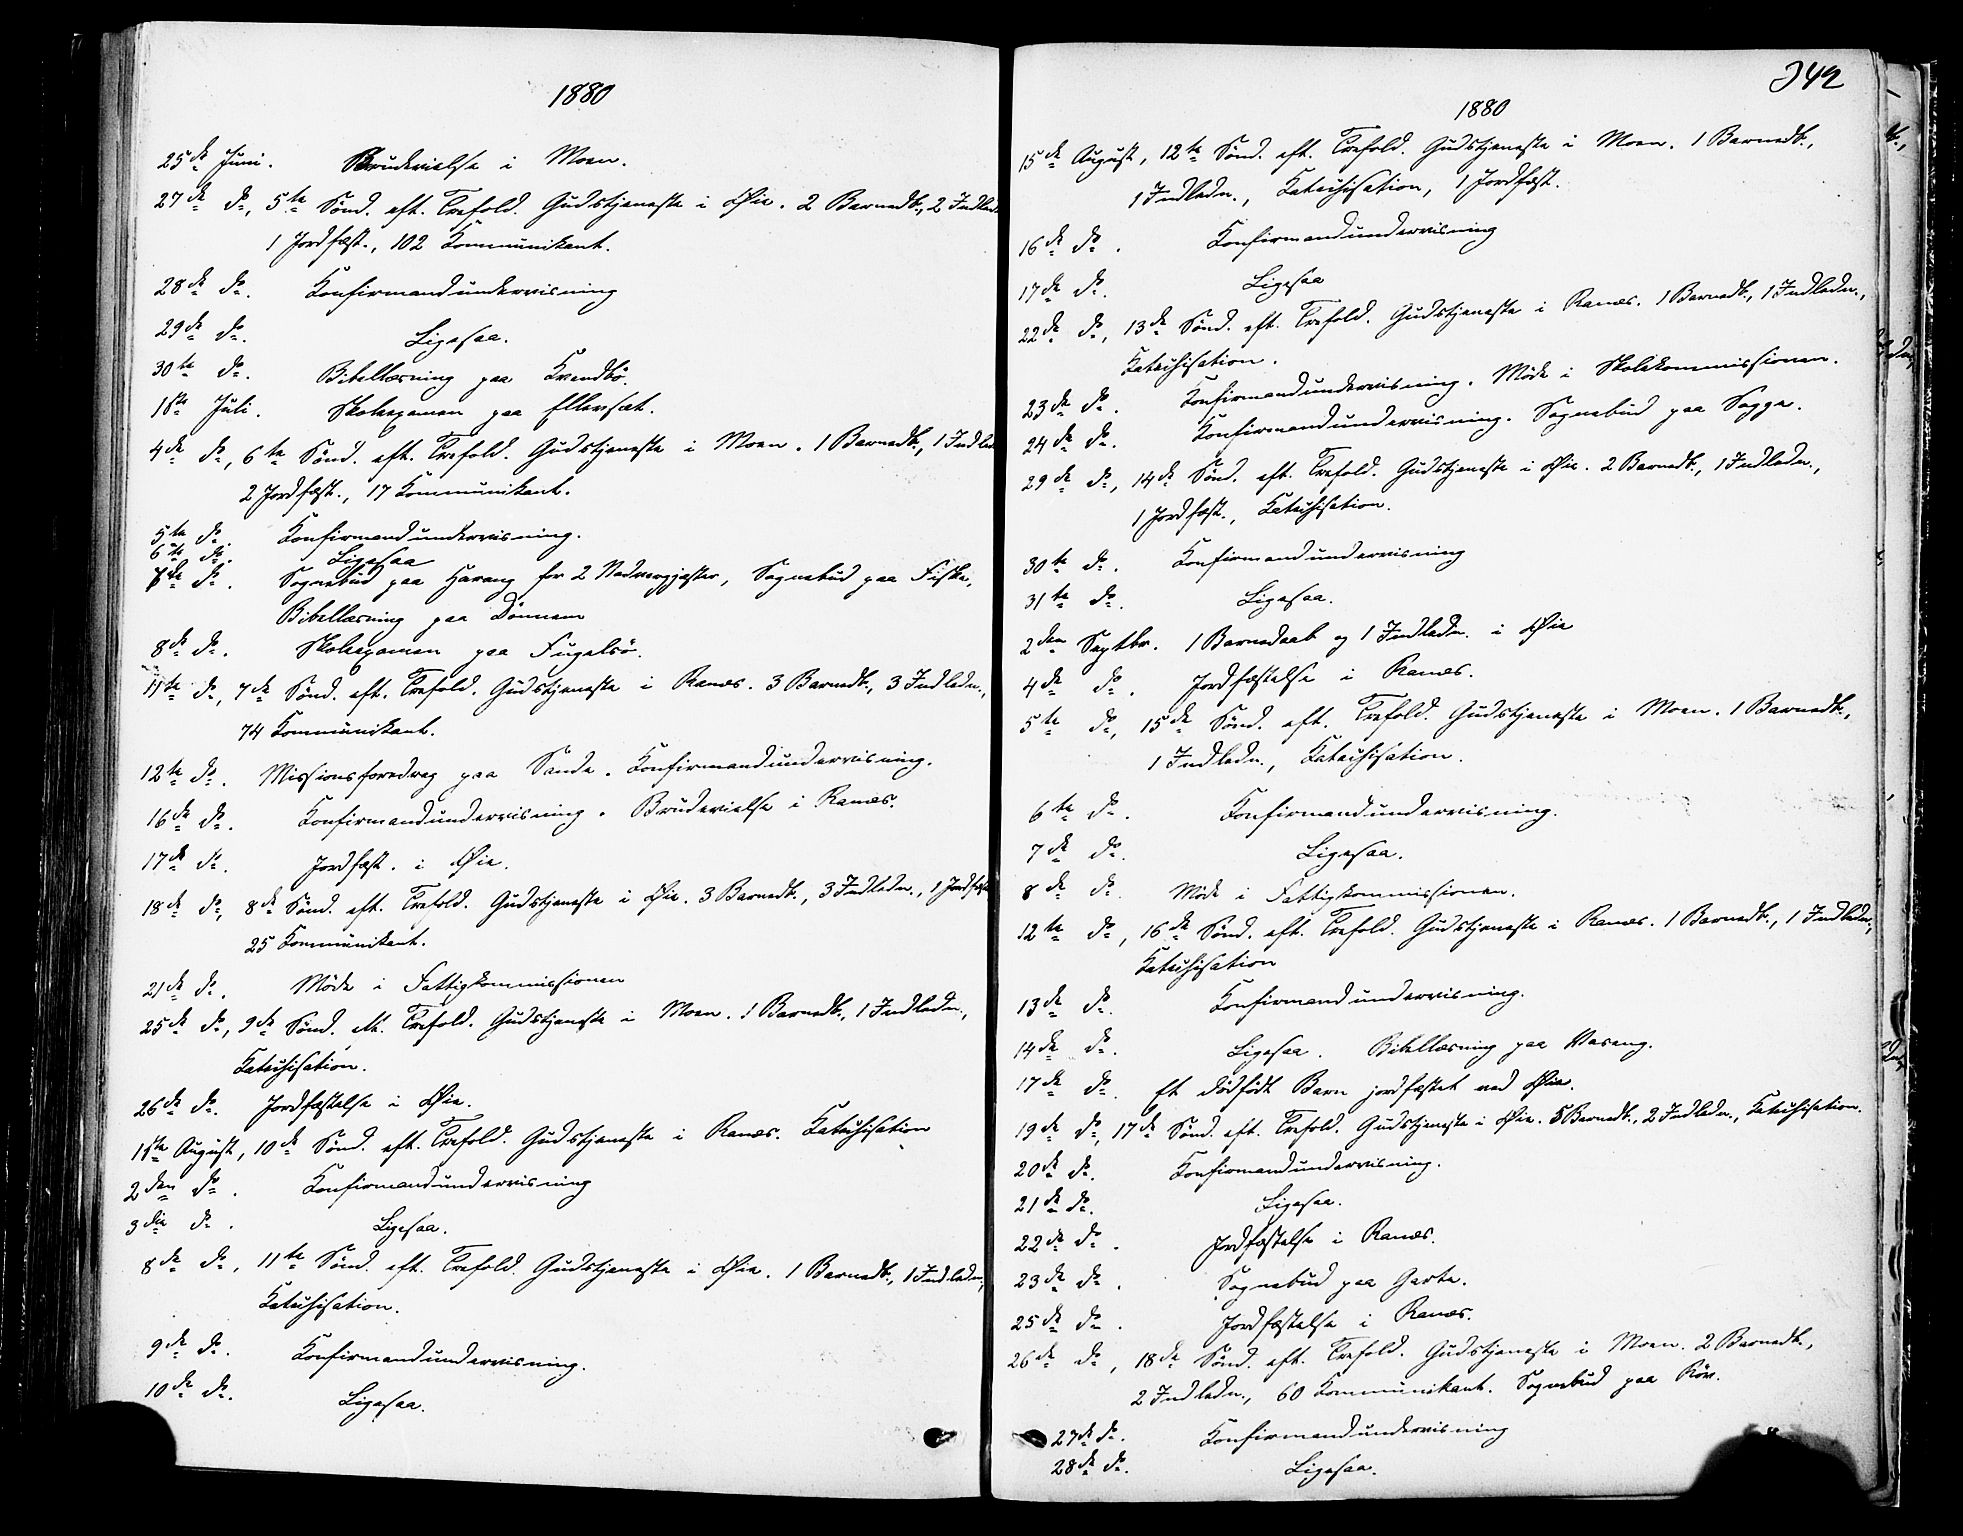 1880
25de Juni. Brudevielse i Moen.
27de do, 5te Sönd. eft. Trefold. Gudstjeneste i Øie. 2 Barnedb., 2 Indled
1 Jordfæst., 102 Kommunikant.
28de do. Konfirmandundervisning
29de do. Ligesaa.
30te do. Bibellæsning paa Kvendbö.
1ste Juli. Skoleexamen paa Ellersæt.
4de do, 6te Sönd. eft. Trefold. Gudstjeneste i Moen. 1 Barnedb., 1 Indled
2 Jordfæst., 17 Kommunikant.
5te do. Konfirmandundervisning.
6te do. Ligesaa
7de do. Sognebud paa Harang for 2 Nadvergjæster, Sognebud paa Fiske,
Bibellæsning paa Dönnem
8de do. Skoleexamen paa Fugelsö.
11te do, 7de Sönd. eft. Trefold. Gudstjeneste i Ranæs. 3 Barnedb., 3 Indledn.,
74 Kommunikant.
12te do. Missionsforedrag paa Sande. Konfirmandundervisning.
16de do. Konfirmandundervisning. Brudevielse i Ranæs.
17de do. Jordfæst. i Øie.
18de do, 8de Sönd. eft. Trefold. Gudstjeneste i Øie. 3 Barnedb., 3 Indledn., 1 Jordfæst
25 Kommunikant.
21de do. Möde i Fattigkommissionen
25de do, 9de Sönd. eft. Trefold. Gudstjeneste i Moen. 1 Barnedb., 1 Indledn.,
Katechisation.
26de do. Jordfæstelse i Øie.
1ste August, 10de Sönd. eft. Trefold. Gudstjeneste i Ranæs. Katechisation
2den do. Konfirmandundervisning
3die do. Ligesaa.
8de do, 11te Sönd. eft. Trefold. Gudstjeneste i Øie. 1 Barnedb., 1 Indledn.,
Katechisation.
9de do. Konfirmandundervisning.
10de do. Ligesaa.
342
1880
15de August, 12te Sönd. eft. Trefold. Gudstjeneste i Moen. 1 Barnedb.,
1 Indledn., Katechisation, 1 Jordfæst.
16de do. Konfirmandundervisning
17de do. Ligesaa
22de do, 13de Sönd. eft. Trefold. Gudstjeneste i Ranæs. 1 Barnedb., 1 Indledn.,
Katechisation.
23de do. Konfirmandundervisning. Möde i Skolekommissionen.
24de do. Konfirmandundervisning. Sognebud paa Sogge.
29de do, 14de Sönd. eft. Trefold. Gudstjeneste i Øie. 2 Barnedb., 1 Indledn.,
1 Jordfæst., Katechisation.
30te do. Konfirmandundervisning
31te do. Ligesaa.
2den Septbr. 1 Barnedaab og 1 Indledn. i Øie
4de do. Jordfæstelse i Ranæs.
5te do, 15de Sönd. eft. Trefold. Gudstjeneste i Moen. 1 Barnedb.,
1 Indledn., Katechisation.
6te do. Konfirmandundervisning.
7de do. Ligesaa.
8de do. Möde i Fattigkommissionen.
12te do, 16de Sönd. eft. Trefold. Gudstjeneste i Ranæs. 1 Barnedb., 1 Indledn.,
Katechisation
13de do. Konfirmandundervisning.
14de do. Ligesaa. Bibellæsning paa Vaseng.
17de do. Et dödfödt Barn jordfæstet ved Øie.
19de do, 17de Sönd. eft. Trefold. Gudstjeneste i Øie. 5 Barnedb., 2 Indledn., Katechisation.
20de do. Konfirmandundervisning.
21de do. Ligesaa.
22de do. Jordfæstelse i Ranæs.
23de do. Sognebud paa Garte.
25de do. Jordfæstelse i Ranæs.
26de do, 18de Sönd. eft. Trefold. Gudstjeneste i Moen. 2 Barnedb.,
2 Indledn., 60 Kommunikant. Sognebud paa Röv.
27de do. Konfirmandundervisning
28de do. Ligesaa.